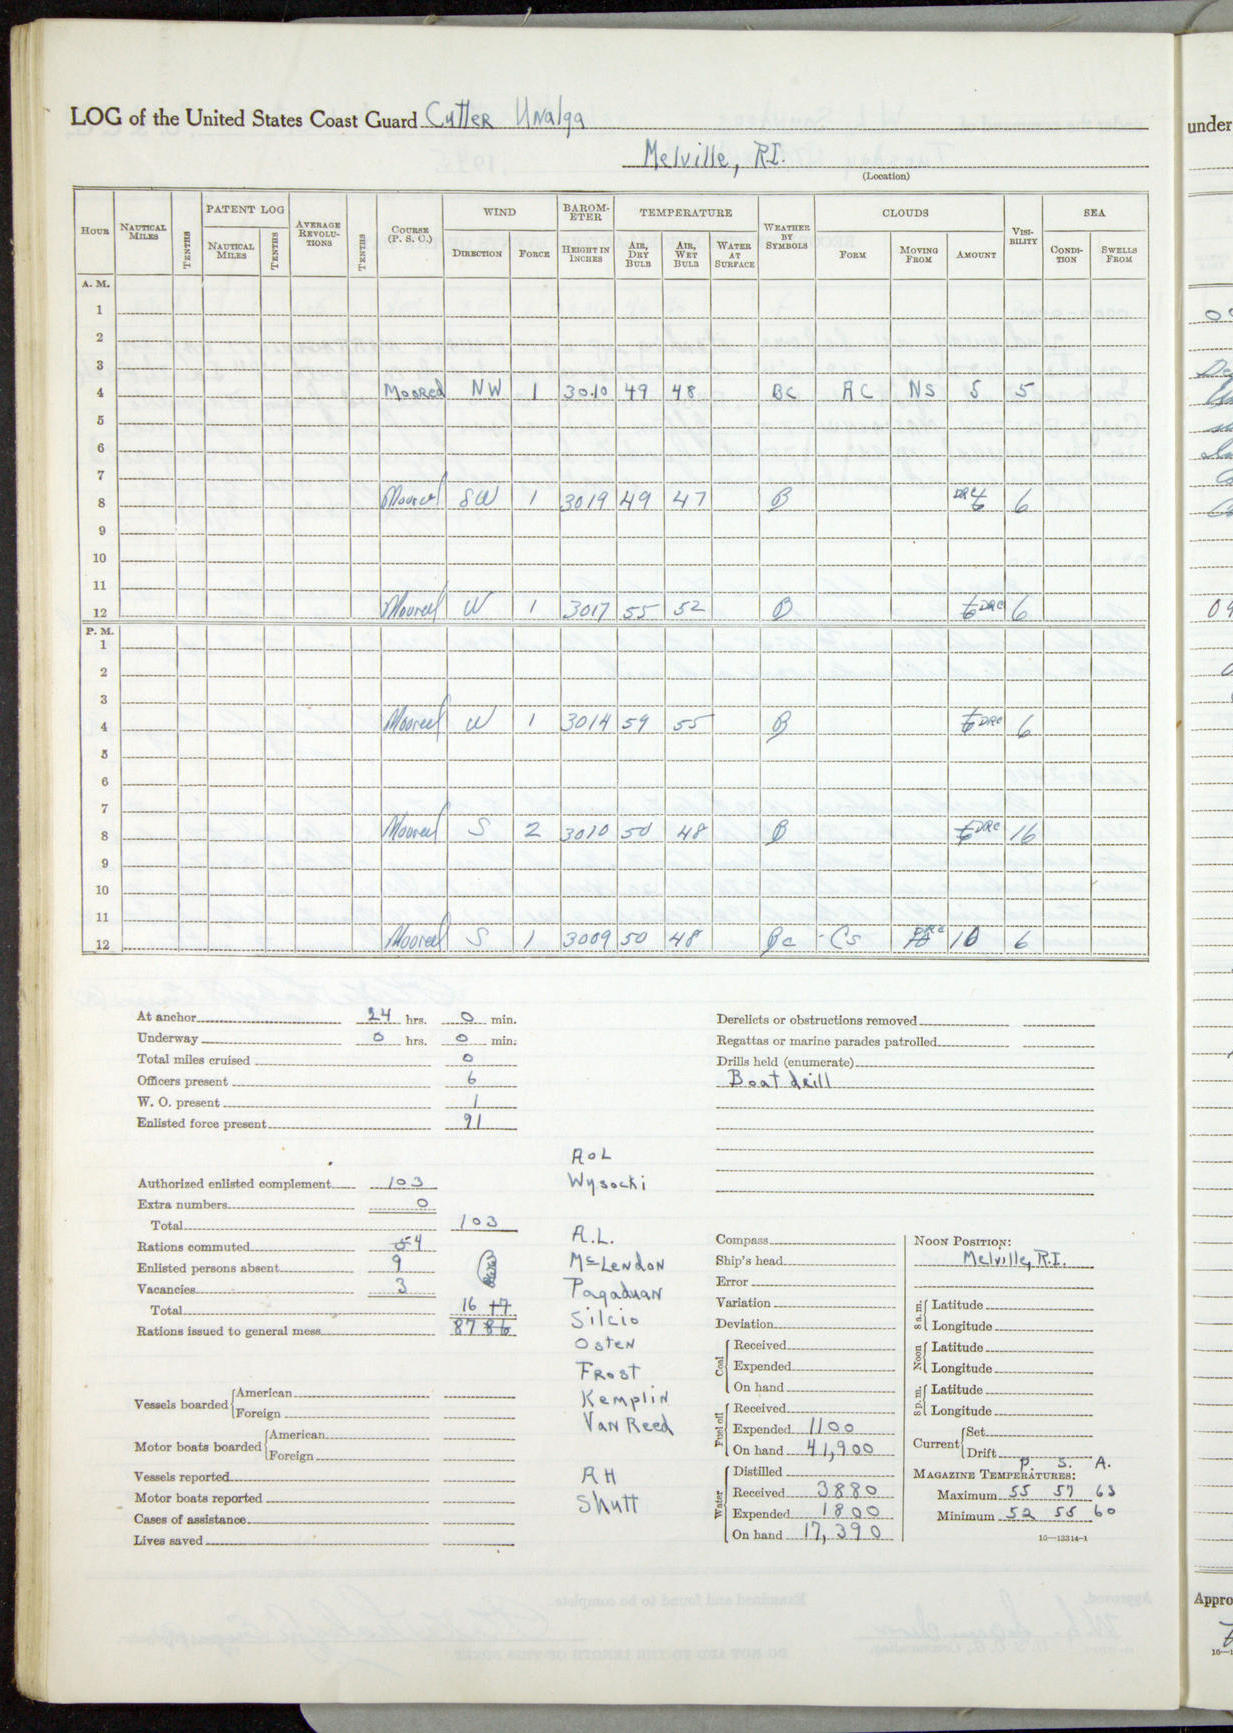 LOG of the United States Coast Guard Cutter Unalga
Melville, R.I.
(Location)
HOUR NAUTICAL MILES TENTHS PATENT LOG NAUTICAL MILES TENTHS AVERAGE REVOLUTIONS TENTHS COURSE (P. S. C.) WIND DIRECTION FORCE BAROMETER HEIGHT IN INCHES TEMPERATURE AIR, DRY BULB AIR, WET BULB WATER AT SURFACE WEATHER BY SYMBOLS CLOUDS FORM MOVING FROM AMOUNT VISIBILITY SEA CONDITION SWELLS FROM
A. M.
1
2
3
4 Moored NW 1 30.10 49 48 BC AC NS 5 5
5
6
7
8 Moored SW 1 3019 49 47 B DRC 6 6
9
10
11
12 Moored W 1 3017 55 52 B 6 DRC 6
P. M.
1
2
3
4 Moored W 1 3014 59 55 B 6 DRC 6
5
6
7
8 Moored S 2 3010 50 48 B 6 DRC 16
9
10
11
12 Moored S 1 3009 50 48 Bc Cs 10 6
At anchor 24 hrs. 0 min.
Underway 0 hrs. 0 min.
Total miles cruised 0
Officers present 6
W. O. present 1
Enlisted force present 91
Authorized enlisted complement 103
Extra numbers 0
Total 103
Rations commuted 4
Enlisted persons absent 9
Vacancies 3
Total 16 17
Rations issued to general mess 87 86
Vessels boarded American
Foreign
Motor boats boarded American
Foreign
Vessels reported
Motor boats reported
Cases of assistance
Lives saved
AOL
Wysocki
A.L.
McLendon
Pagaduan
Silcio
Osten
Frost
Kemplin
Van Reed
AH
Shutt
Derelicts or obstructions removed
Regattas or marine parades patrolled
Drills held (enumerate)
Boat drill
Compass
Ship's head
Error
Variation
Deviation
Coal Received
Expended
On hand
Fuel oil Received
Expended 1100
On hand 41,900
Water Distilled
Received 3880
Expended 1800
On hand 17,390
NOON POSITION:
Melville, R.I.
8 a. m. Latitude
Longitude
Noon Latitude
Longitude
8 p. m. Latitude
Longitude
Current Set
Drift
P. S. A.
MAGAZINE TEMPERATURES:
Maximum 55 57 63
Minimum 52 55 60
16—13314-1
under
Appro